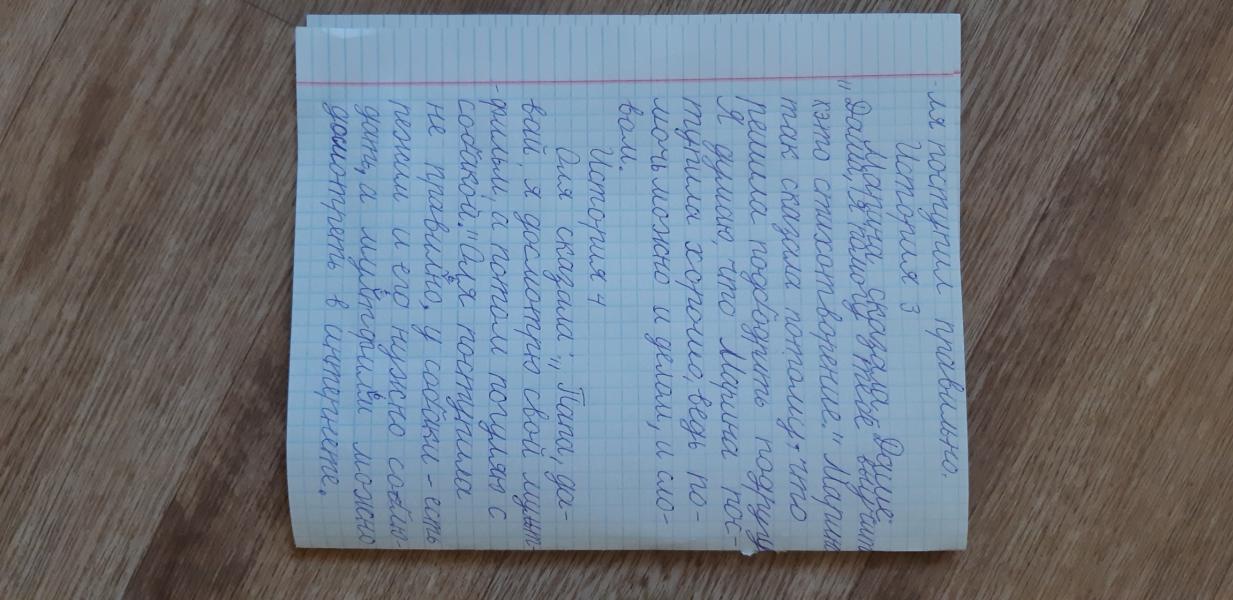 -ля поступил правильно.
История 3
Марина сказала Даше:
"Даша, я помогу тебе выучить
кэто стихотворение." Марина
так сказала потому, что
решила подбодрить подругу
Я думаю, что Марина пос-
тупила хорошо, ведь по-
мочь можно и делом, и сло-
вом.
История 4
Оля сказала: "Папа, да-
вай я досмотрю свой мульт-
-фильм, а потом погуляю с
собакой." Оля поступила
не правильно, у собаки - есть
режим и его нужно соблю-
дать, а мультфильм можно
досмотреть в интернете.